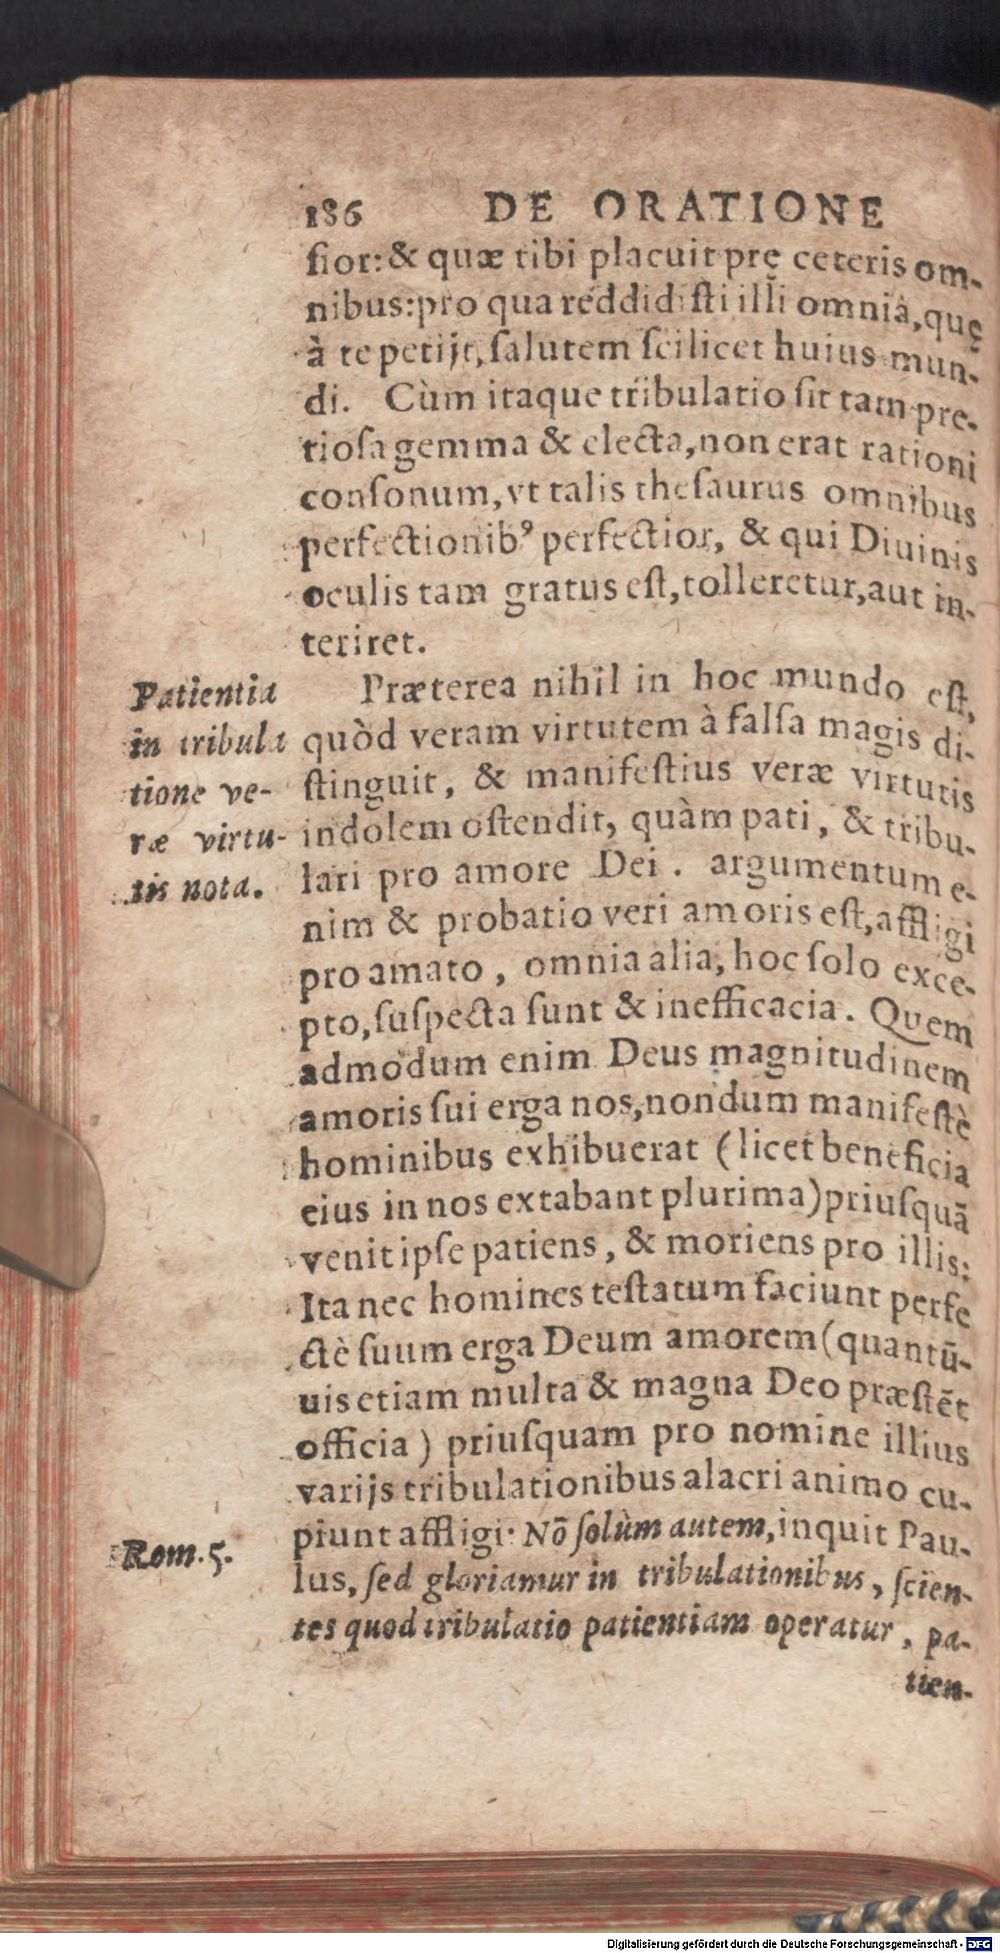 186 DE ORATIONE
ſior: & quæ tibi placuit prę ceteris om-
nibus: pro qua reddidiſti illi omnia, quę
à te petijt, ſalutem ſcilicet huius mun-
di. Cùm itaque tribulatio ſit tam pre-
tioſa gemma & electa, non erat rationi
conſonum, vt talis theſaurus omnibus
perfectionibꝰ perfectior, & qui Diuinis
oculis tam gratus eſt, tolleretur, aut in-
teriret.
Patientia
in tribula
tione ve-
ræ virtu-
tis nota.
Præterea nihil in hoc mundo eſt,
quòd veram virtutem à falſa magis di-
ſtinguit, & manifeſtius veræ virtutis
indolem oſtendit, quàm pati, & tribu-
lari pro amore Dei. argumentum e-
nim & probatio veri amoris eſt, affligi
pro amato, omnia alia, hoc ſolo exce-
pto, ſuſpecta ſunt & inefficacia. Quem
admodum enim Deus magnitudinem
amoris ſui erga nos, nondum manifeſtè
hominibus exhibuerat (licet beneficia
eius in nos extabant plurima) priuſquā
venit ipſe patiens, & moriens pro illis:
Ita nec homines teſtatum faciunt perfe
ctè ſuum erga Deum amorem (quantū-
uis etiam multa & magna Deo præſtēt
officia) priuſquam pro nomine illius
varijs tribulationibus alacri animo cu-
piunt affligi. Nō ſolùm autem, inquit Pau-
Rom. 5.
lus, ſed gloriamur in tribulationibus, ſcien-
tes quod tribulatio patientiam operatur, pa-
tien-
Digitalisierung gefördert durch die Deutsche Forschungsgemeinschaft - DFG